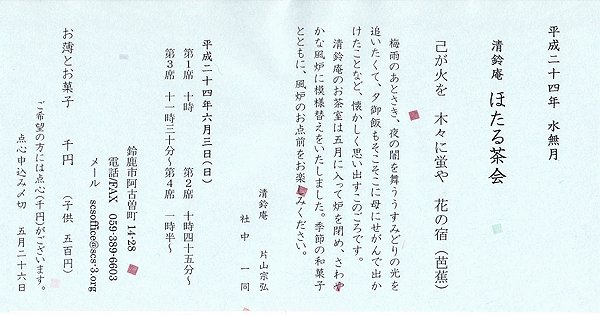 平成二十四年 水無月
清鈴庵 ほたる茶会
己が火を 木々に蛍や 花の宿 （芭蕉）
梅雨のあとさき、夜の闇を舞ううすみどりの光を
追いたくて、夕御飯もそこそこに母にせがんで出か
けたことなど、懐かしく思い出すこのごろです。
清鈴庵のお茶室は五月に入って炉を閉め、さわや
かな風炉に模様替えをいたしました。季節の和菓子
とともに、風炉のお点前をお楽しみください。
清鈴庵 片山宗弘
社中一同
平成二十四年六月三日（日）
第１席 十時 第２席 十時四十五分～
第３席 十一時三十分～ 第４席 一時半～
鈴鹿市阿古曽町 14-28
電話/FAX 059-389-6603
メール scsoffice@scs-3.org
お薄とお菓子 千円 （子供 五百円）
ご希望の方には点心（千円）がございます。
点心申込み〆切 五月二十六日